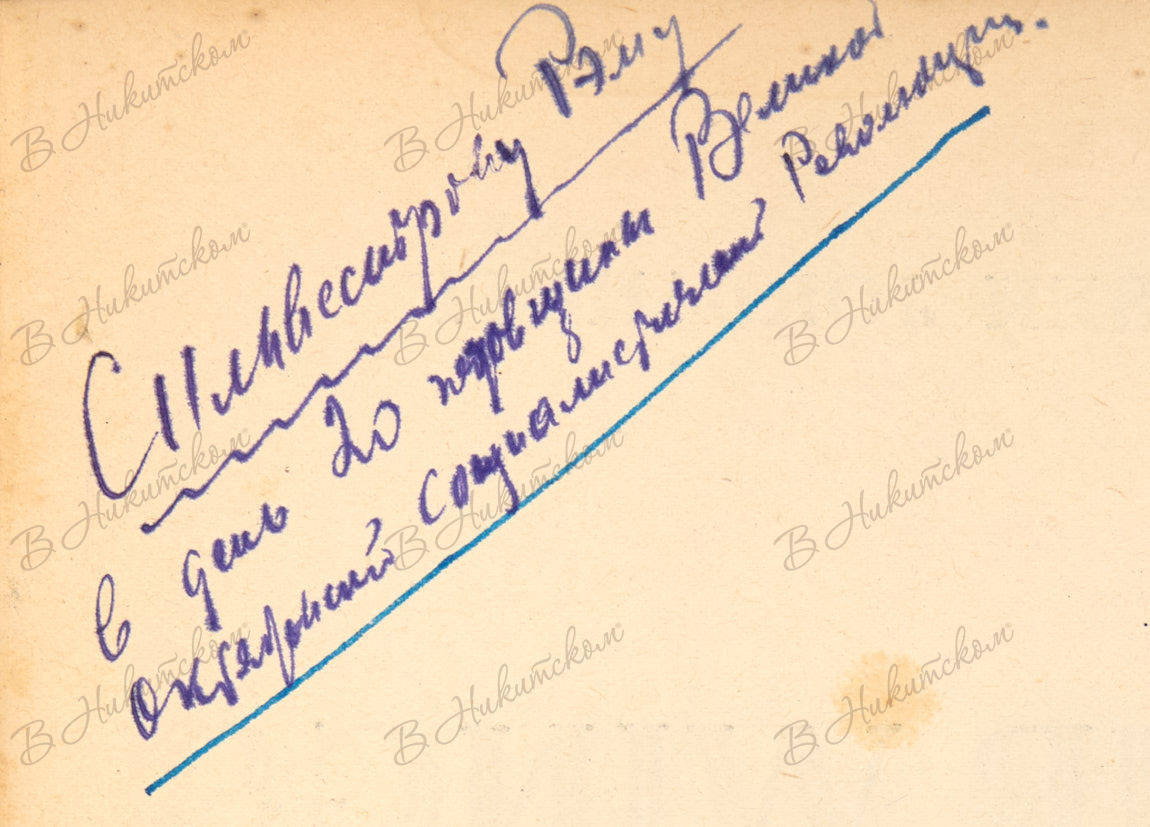 Сильвестрову Рэму
в день 20 годовщины Великой
Октябрьской Социалистической Революции.
В Никитском
В Никитском
В Никитском
В Никитском
В Никитском
В Никитском
В Никитском
В Никитском
В Никитском
В Никитском
В Никитском
В Никитском